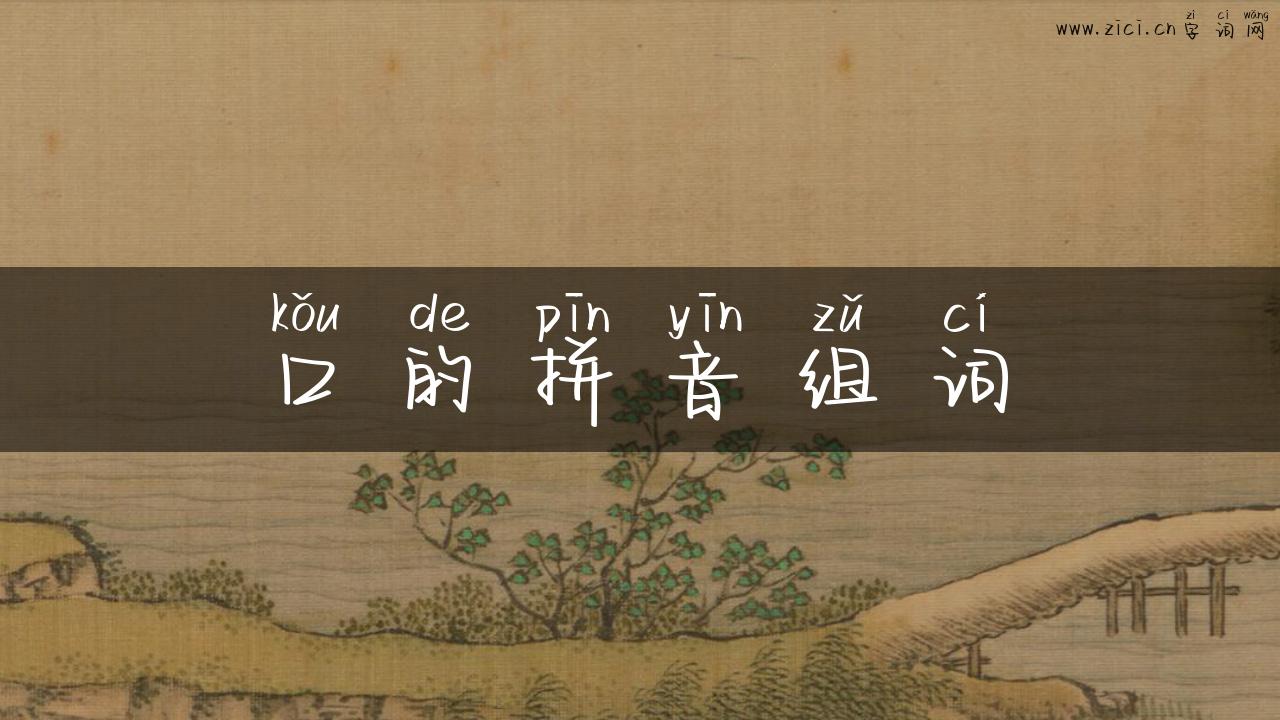 zì cí wǎng
www.zici.cn 字词网
kǒu de pīn yīn zǔ cí
口的拼音组词